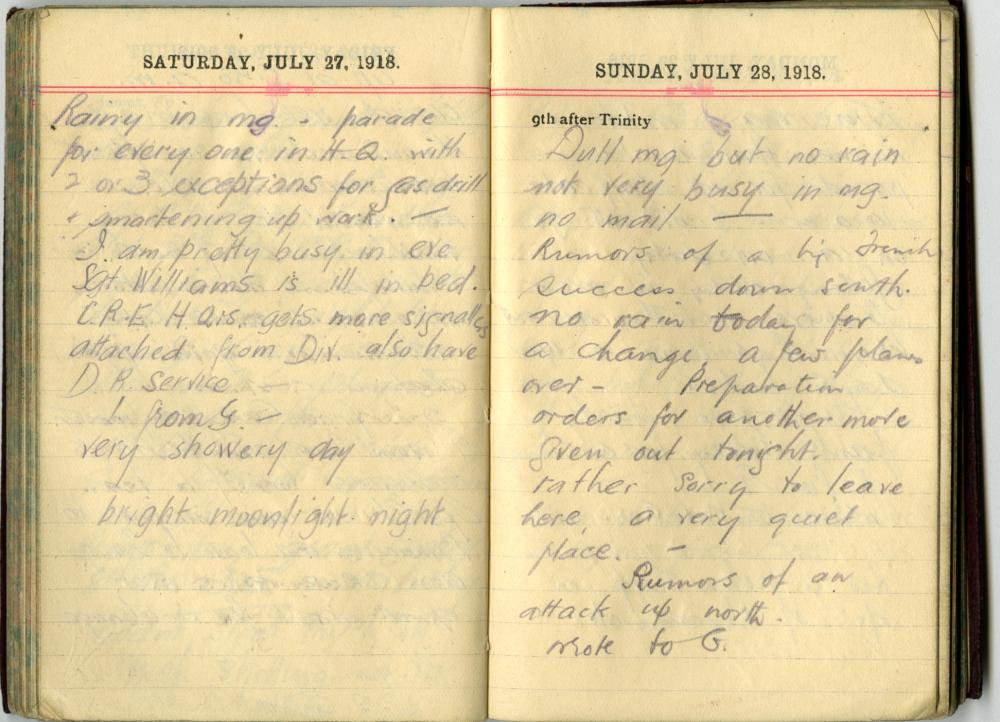 SATURDAY, JULY 27, 1918.
Rainy in mg. - parade
for every one in H.Q. with
2 or 3 exceptions for gas drill
+ smartening up work. —
I am pretty busy in eve
Sgt Williams is ill in bed.
C.R.E. H.Qrs. gets more signallers
attached from Div. also have
D.R. service —
from G. —
very showery day
bright moonlight night
SUNDAY, JULY 28, 1918.
9th after Trinity
Dull mg but no rain
not very busy in mg.
no mail —
Rumors of a big French
success down south.
no rain today for
a change a few planes
over - Preparation
orders for another move
given out tonight.
rather sorry to leave
here a very quiet
place. —
Rumors of an
attack up north.
wrote to G.